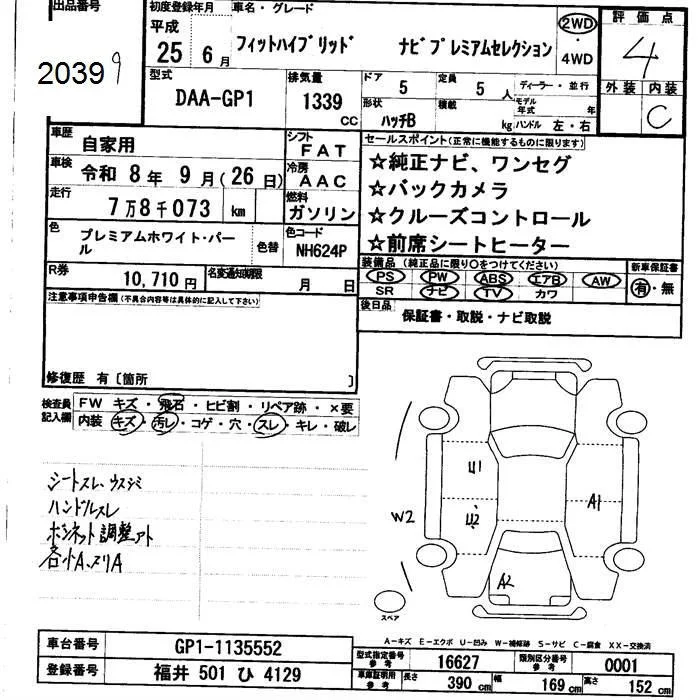 出品番号 初度登録年月 車名・グレード 評価点
平成
25年 6月 フィットハイブリッド ナビプレミアムセレクション 2WD・4WD 4
20399
型式 排気量 ドア 定員 ディーラー・並行 外装 内装
DAA-GP1 1339cc 5 5人 モデル年式 年
形状 積載 C
ハッチB kg ハンドル 左・右
車歴 自家用 シフト FAT セールスポイント(正常に機能するものに限ります)
車検 令和 8年 9月(26日) 冷房 AAC ☆純正ナビ、ワンセグ
走行 7万8千073 km 燃料 ガソリン ☆バックカメラ
☆クルーズコントロール
色 プレミアムホワイト・パール 色替 色コード NH624P ☆前席シートヒーター
R券 10,710円 名変通知期限 月 日 装備品(純正品に限り○をつけてください) 新車保証書
PS PW ABS エアB AW 有・無
SR ナビ TV カワ
注意事項申告欄(不具合内容等は具体的に記入して下さい)
後日品 保証書・取説・ナビ取説
修復歴 有〔箇所 〕
検査員記入欄 FW キズ・飛石・ヒビ割・リペア跡・×要
内装 キズ・汚レ・コゲ・穴・スレ・キレ・破レ
シートスレ、ウスシミ
ハンドルスレ
ボンネット調整アト
各小A、ヌリA
U1
U2
A1
W2
A2
スペア
A-キズ E-エクボ U-凹み W-補修跡 S-サビ C-腐食 XX-交換済
車台番号 GP1-1135552 型式指定番号 参考 16627 類別区分番号 参考 0001
登録番号 福井 501 ひ 4129 車庫証明用 参考 長さ 390cm 幅 169cm 高さ 152cm